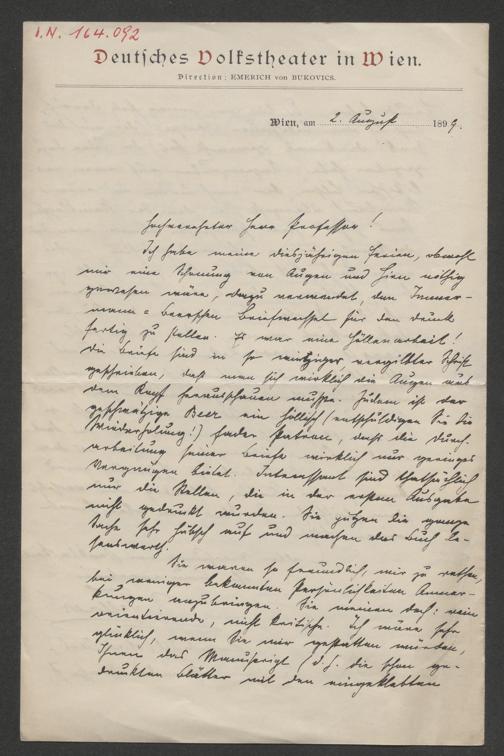 I.N. 164.092
Deutsches Volkstheater in Wien.
Direction: EMERICH von BUKOVICS.
Wien, am 2. August 1899.
Hochverehrter Herr Professor!
Ich habe meine diesjährigen Ferien, obwohl
mir eine Schonung von Augen und Hirn nöthig
gewesen wäre, dazu verwendet, den Immer-
mann = Beer'schen Briefwechsel für den Druck
fertig zu stellen. Es war eine Höllenarbeit!
Die Briefe sind in so winziger vergilbter Schrift
geschrieben, daß man sich wirklich die Augen aus
dem Kopf herausschauen mußte. Zudem ist der
geschwätzige Beer ein höllisch (entschuldigen Sie die
Wiederholung!) fader Patron, daß die Durch-
arbeitung seiner Briefe wirklich nur geringes
Vergnügen bietet. Interessant sind thatsächlich
nur die Stellen, die in der ersten Ausgabe
nicht gedruckt wurden. Sie putzen die ganze
Sache sehr hübsch auf und machen das Buch le-
senswerth.
Sie waren so freundlich, mir zu rathen,
bei weniger bekannten Persönlichkeiten Anmer-
kungen anzubringen. Sie meinen doch: rein
orientierende, nicht kritische. Ich wäre sehr
glücklich, wenn Sie mir gestatten würden,
Ihnen das Manuscript (d. h. die schon ge-
druckten Blätter mit den eingeklebten